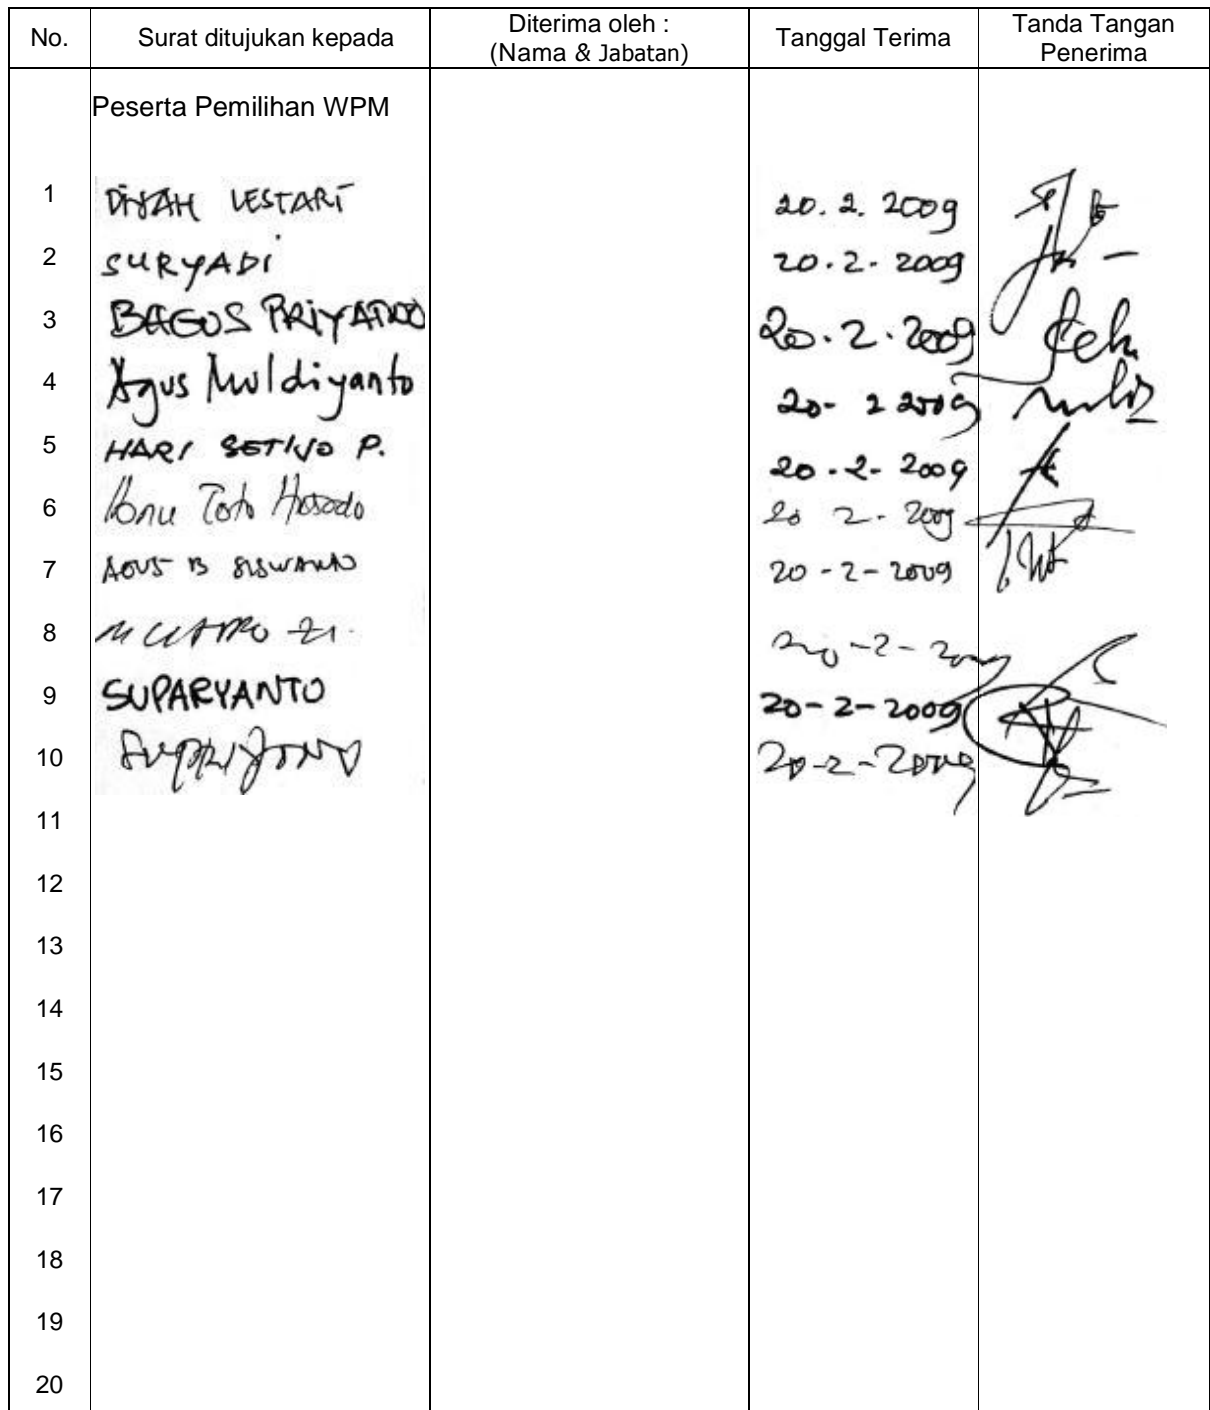 No. Surat ditujukan kepada Diterima oleh : Tanggal Terima Tanda Tangan
(Nama & Jabatan) Penerima
Peserta Pemilihan WPM
1 DIYAH LESTARI 20. 2. 2009
2 SURYADI 20.2. 2009
3 BAGUS PRIYATNO 20.2.2009
4 Agus Muldiyanto 20- 2 2009
5 HARI SETIYO P. 20-2- 2009
6 Toto 20 2- 2009
7 AGUS B SISWANTO 20-2-2009
8 20-2-2009
9 SUPARYANTO 20-2-2009
10 20-2-2009
11
12
13
14
15
16
17
18
19
20